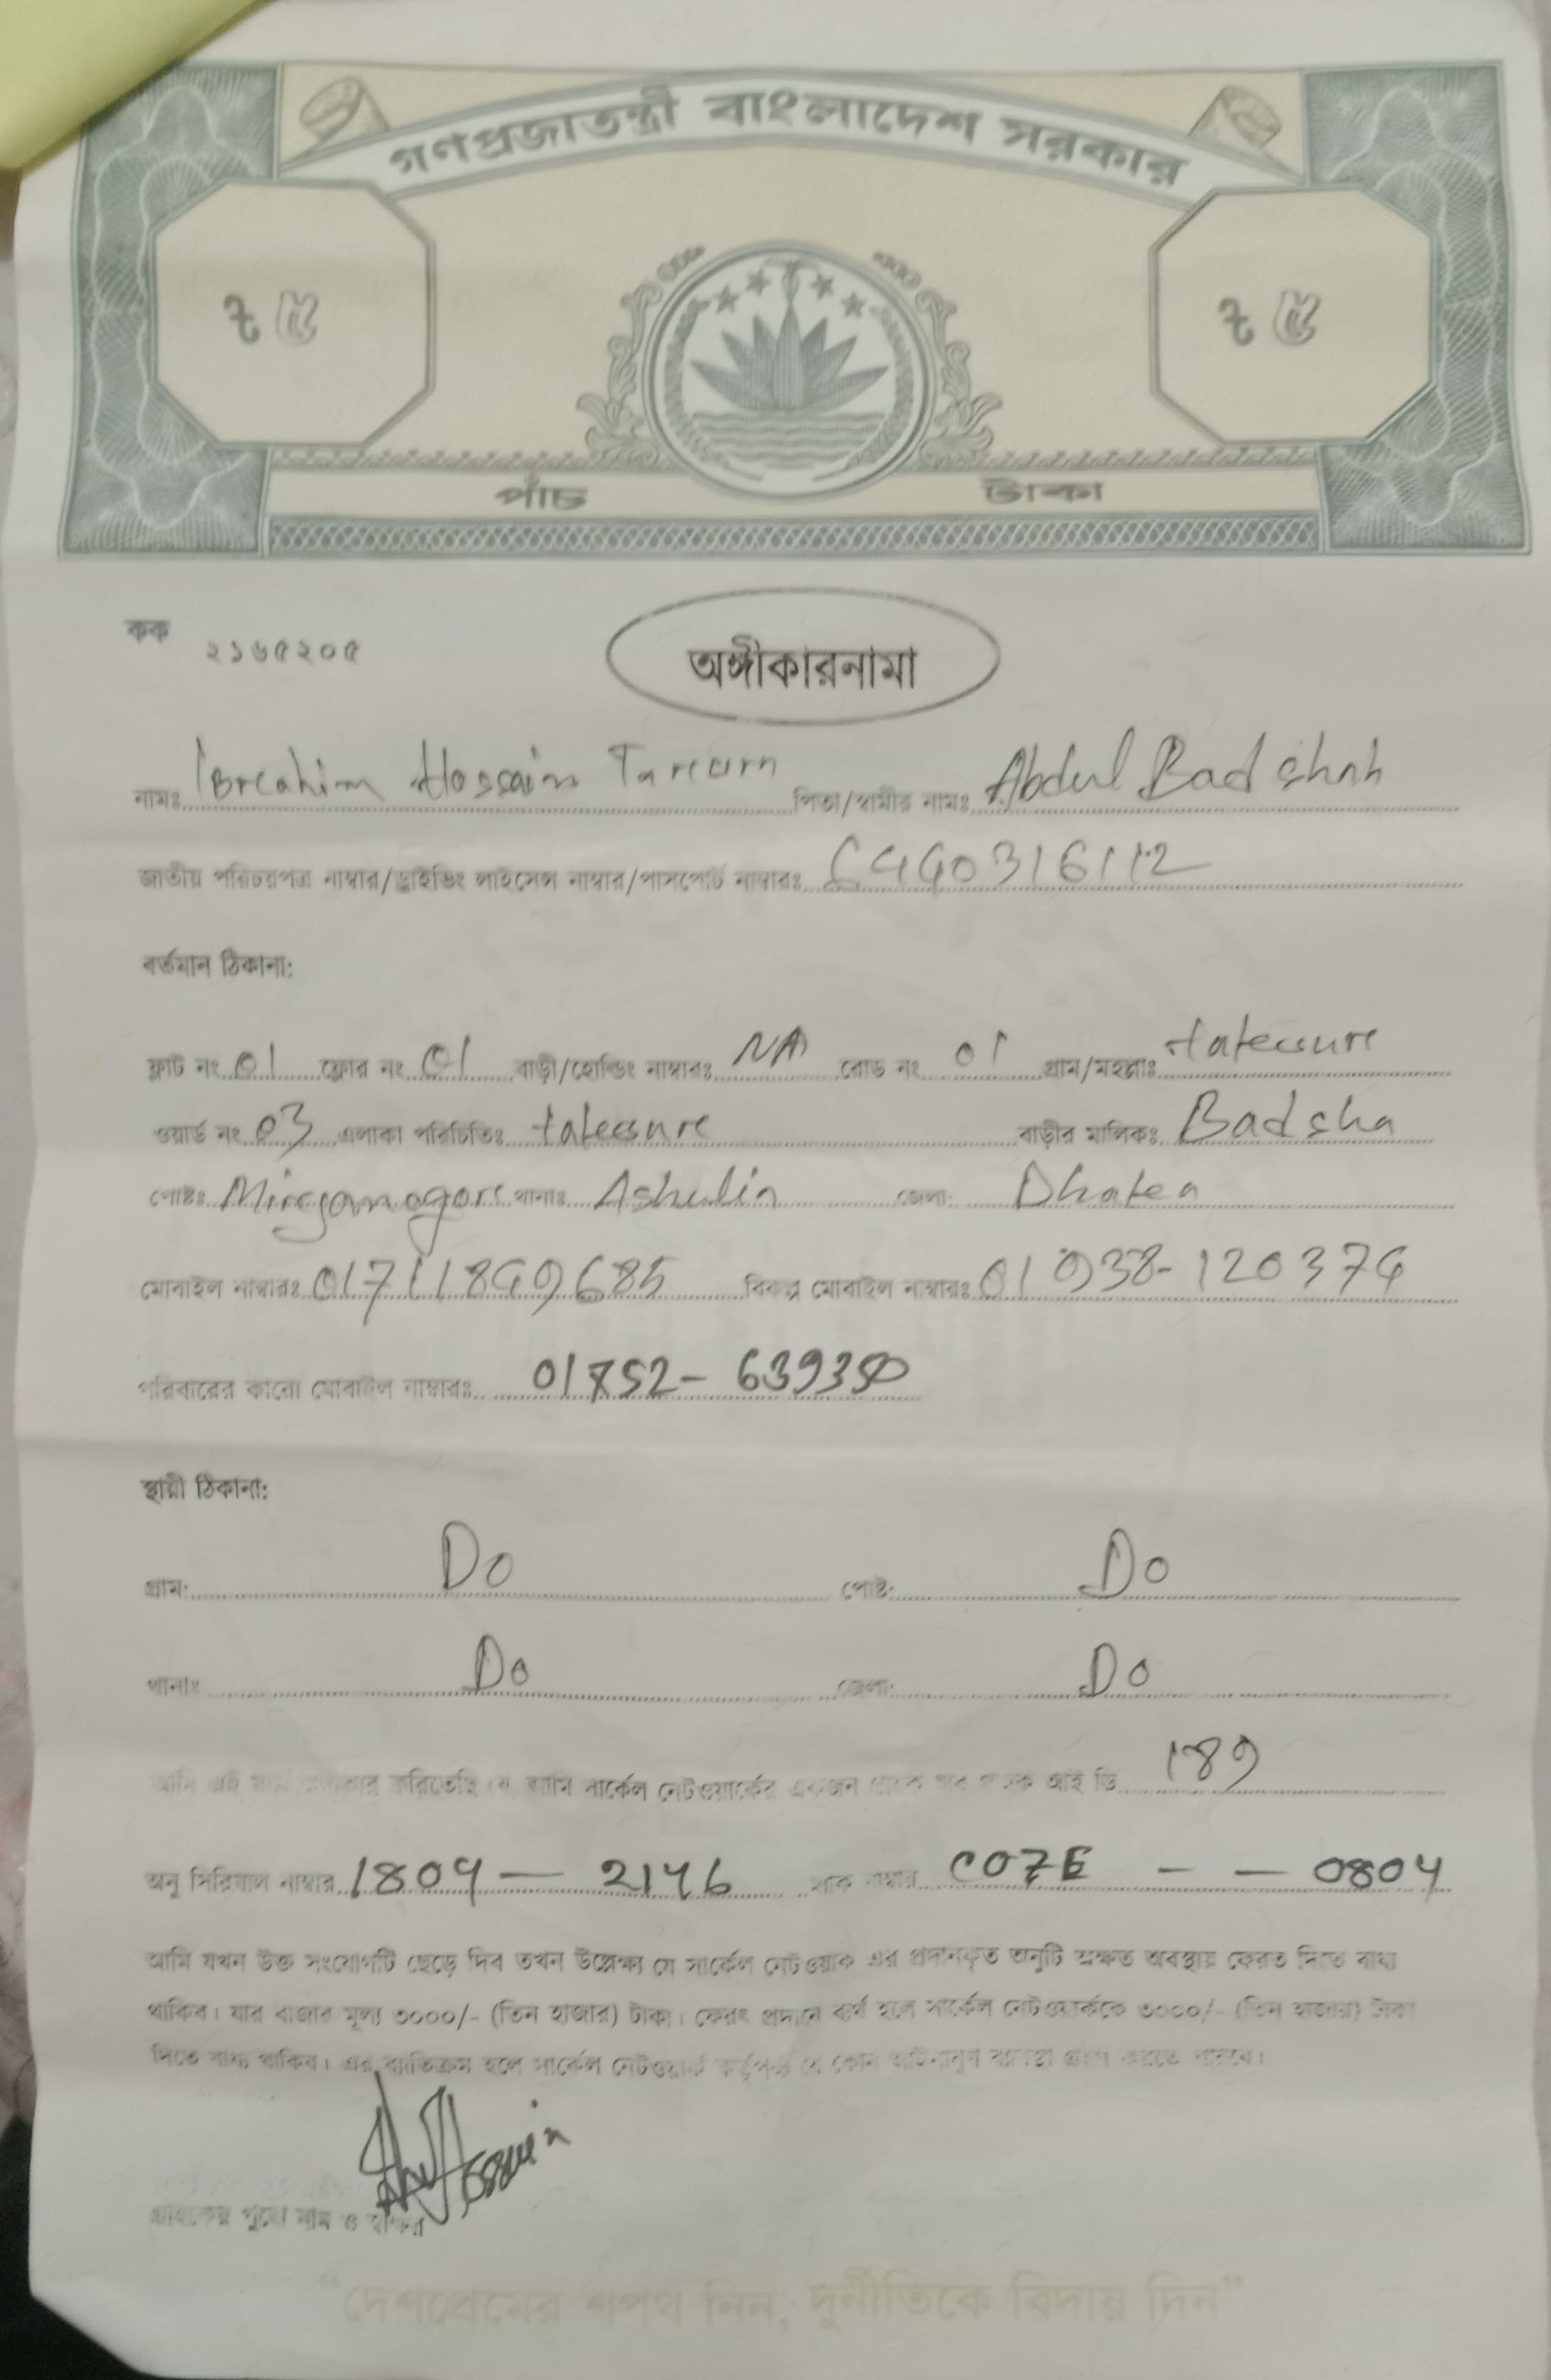 গণপ্রজাতন্ত্রী বাংলাদেশ সরকার
৳ ৫ ৳ ৫
পাঁচ টাকা
কক ২১৬৫২০৫
অঙ্গীকারনামা
নামঃ Ibrahim Hossain পিতা/স্বামীর নামঃ Abdul Badshah
জাতীয় পরিচয়পত্র নাম্বার/ড্রাইভিং লাইসেন্স নাম্বার/পাসপোর্ট নাম্বারঃ 6440316112
বর্তমান ঠিকানা:
ফ্লাট নং 01 ফ্লোর নং 01 বাড়ী/হোল্ডিং নাম্বারঃ NA রোড নং 01 গ্রাম/মহল্লাঃ
ওয়ার্ড নং 03 এলাকা পরিচিতিঃ বাড়ীর মালিকঃ Badsha
পোষ্টঃ থানাঃ Ashulia জেলা: Dhaka
মোবাইল নাম্বারঃ 01711849685 বিকল্প মোবাইল নাম্বারঃ 01938-120374
পরিবারের কারো মোবাইল নাম্বারঃ 01852-639350
স্থায়ী ঠিকানা:
গ্রাম: Do পোষ্ট: Do
থানাঃ Do জেলা: Do
আমি এই করিতেছি যে, আমি সার্কেল নেটওয়ার্কের একজন গ্রাহক যার গ্রাহক আই ডি 189
অনু সিরিয়াল নাম্বার 1804 — 2146 ম্যাক নাম্বার C07E - - 0804
আমি যখন উক্ত সংযোগটি ছেড়ে দিব তখন উল্লেক্ষ্য যে সার্কেল নেটওয়ার্ক এর প্রদানকৃত অনুটি অক্ষত অবস্থায় ফেরত দিতে বাধ্য
থাকিব। যার বাজার মূল্য ৩০০০/- (তিন হাজার) টাকা। ফেরৎ প্রদানে ব্যর্থ হলে সার্কেল নেটওয়ার্ককে ৩০০০/- (তিন হাজার) টাকা
দিতে বাধ্য থাকিব। এর ব্যতিক্রম হলে সার্কেল নেটওয়ার্ক কর্তৃপক্ষ যে কোন আইনানুগ ব্যবস্থা গ্রহণ করতে পারবে।
গ্রাহকের পুরো নাম ও স্বাক্ষর
"দেশপ্রেমের শপথ নিন, দুর্নীতিকে বিদায় দিন"